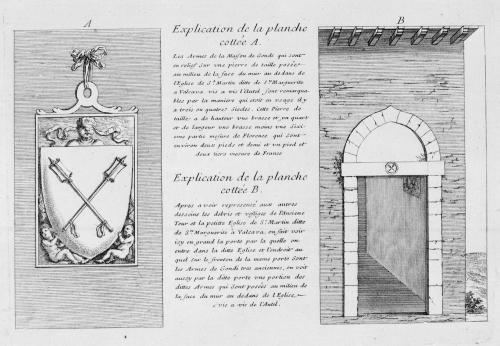 A
Explication de la planche
cottée A.
Les Armes de la Maison de Gondi qui sont
en relief sur une pierre de taille posée
au milieu de la face du mur au dedans de
l'Eglise de St. Martin ditte de Ste. Marguerite
a Valcava vis a vis l'Autel sont remarqua-
bles par la maniere qui etoit en usage il y
a trois ou quatre Siecles. Cette Pierre de
taille a de hauteur une brasse et un quart
et de largeur une brasse moins une Sixié-
me partie mesure de Florence qui sont
environ deux pieds et demi et un pied et
deux tiers mesure de France
Explication de la planche
cottée B.
Apres avoir representé aux autres
desseins les debris et vestiges de l'Ancienne
Tour et la petitte Eglise de St. Martin ditte
de Ste. Marguerite a Valcava, on fait voir
icy en grand la porte par la quelle on
entre dans la ditte Eglise et l'endroit au
quel sur le fronton de la meme porte sont
les Armes de Gondi tres anciennes, on voit
aussy par la ditte porte une portion des
dittes Armes qui sont posées au milieu de
la face du mur au dedans de l'Eglise,
vis a vis de l'Autel.
B